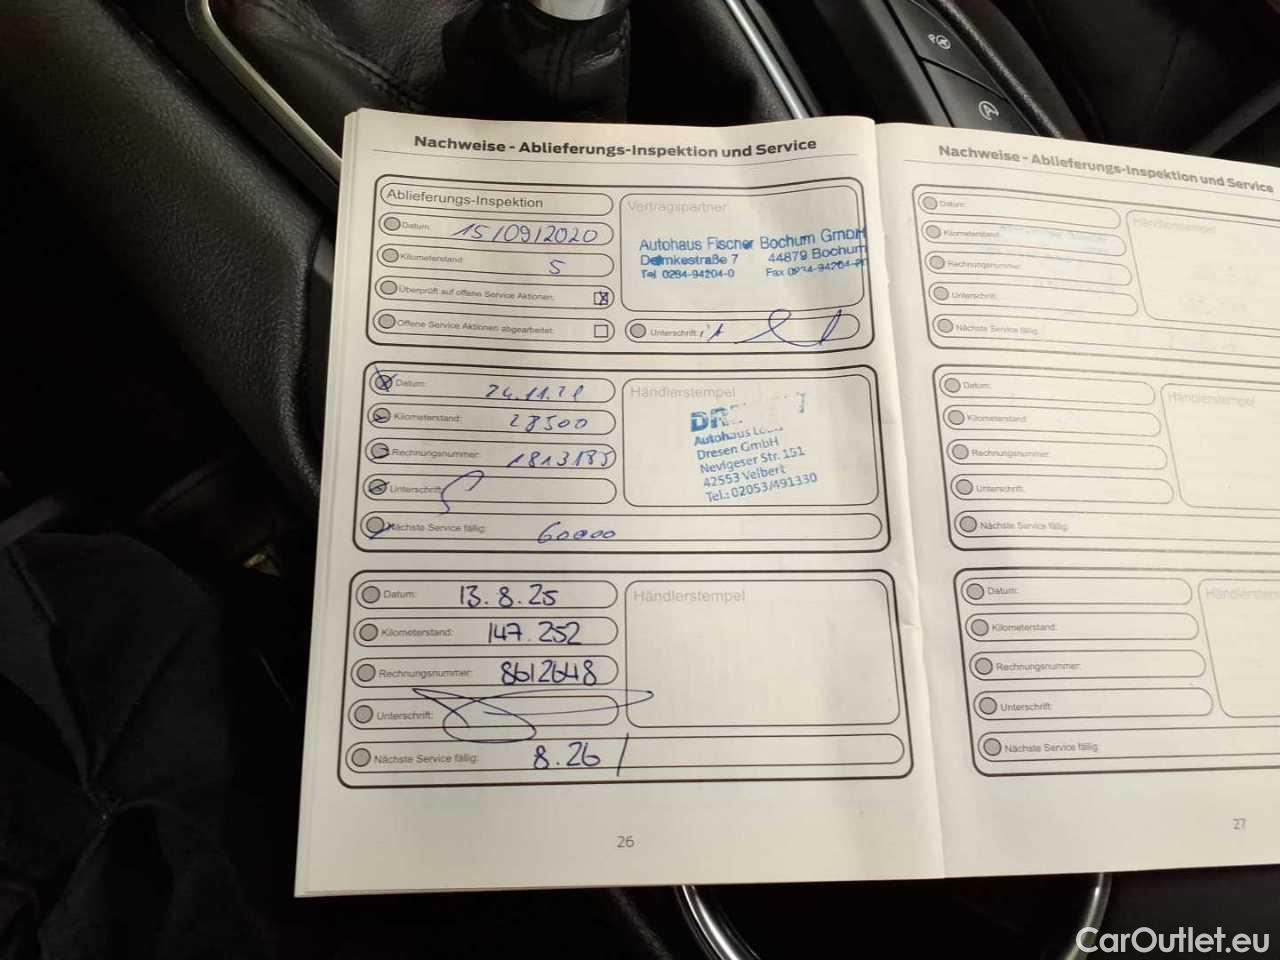 Nachweise - Ablieferungs-Inspektion und Service
Ablieferungs-Inspektion
Datum: 15/09/2020
Kilometerstand: 5
Überprüft auf offene Service Aktionen:
Offene Service Aktionen abgearbeitet:
Vertragspartner
Autohaus Fischer Bochum GmbH
Dalmkestraße 7 44879 Bochum
Tel 0234-94204-0 Fax
Unterschrift:
Datum: 24.11.21
Kilometerstand: 28500
Rechnungsnummer: 1813185
Unterschrift:
Nächste Service fällig: 60000
Händlerstempel
Autohaus
Dresen GmbH
Nevigeser Str. 151
42553 Velbert
Tel.: 02053/491330
Datum: 13.8.25
Kilometerstand: 147.252
Rechnungsnummer: 8612648
Unterschrift:
Nächste Service fällig: 8.26/
Händlerstempel
26
Nachweise - Ablieferungs-Inspektion und Service
Datum:
Kilometerstand:
Rechnungsnummer:
Unterschrift:
Nächste Service fällig:
Händlerstempel
Datum:
Kilometerstand:
Rechnungsnummer:
Unterschrift:
Nächste Service fällig:
Händlerstempel
Datum:
Kilometerstand:
Rechnungsnummer:
Unterschrift:
Nächste Service fällig:
27
CarOutlet.eu